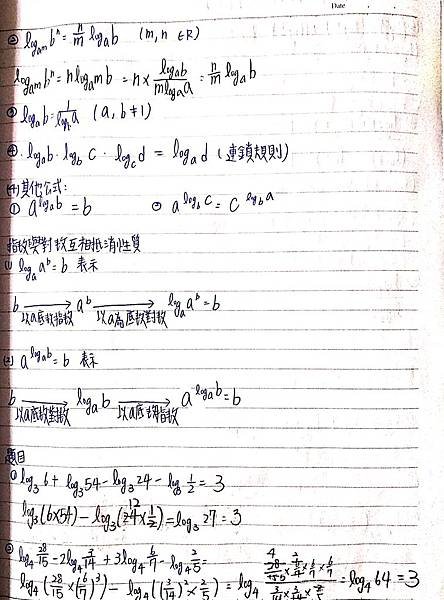 Date
② log_{a^m} b^n = n/m log_a b (m, n ∈ R)
log_{a^m} b^n = n log_{a^m} b = n × log_a b / m log_a a = n/m log_a b
③ log_a b = 1/log_b a (a, b ≠ 1)
④ log_a b · log_b c · log_c d = log_a d (連鎖規則)
(4) 其他公式:
① a^{log_a b} = b ② a^{log_b c} = c^{log_b a}
指數與對數互相抵消性質
(1) log_a a^b = b 表示
b → a^b → log_a a^b = b
以a底取指數 以a為底取對數
(2) a^{log_a b} = b 表示
b → log_a b → a^{log_a b} = b
以a底取對數 以a底取指數
題目
① log_3 6 + log_3 54 - log_3 24 - log_3 1/2 = 3
log_3 (6×54) - log_3 (24 × 1/2) = log_3 27 = 3
12
② log_4 28/15 - 2log_4 3/14 + 3log_4 6/7 - log_4 2/5 =
log_4 (28/15 × (6/7)^3) - log_4 ((3/14)^2 × 2/5) = log_4 = log_4 64 = 3